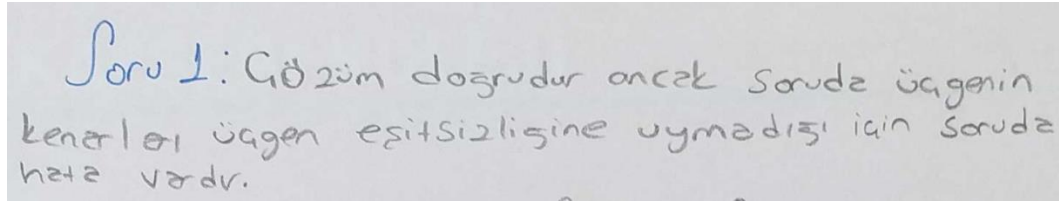 Soru 1: Çözüm doğrudur ancak soruda üçgenin
kenarları üçgen eşitsizliğine uymadığı için soruda
hata vardır.